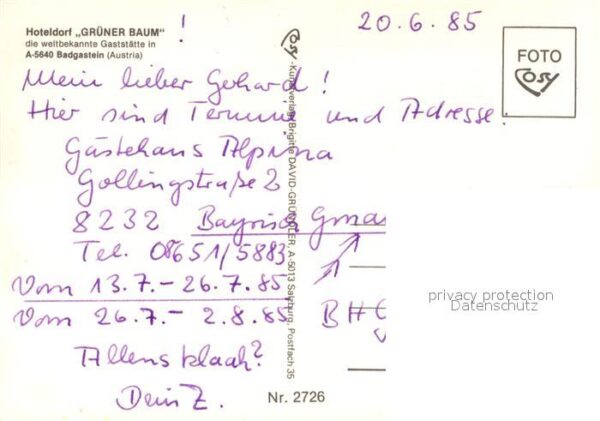 Hoteldorf „GRÜNER BAUM“ !
die weltbekannte Gaststätte in
A-5640 Badgastein (Austria)
20.6.85
FOTO
Cosy
Cosy-Kunstverlag Brigitte DAVID-GRÜNDLER, A-5013 Salzburg, Postfach 35
Mein lieber Gerhard!
Hier sind Termine und Adresse:
Gästehaus Alpina
Gollingstraße 2
8232 Bayrisch Gmai
Tel. 08651/5883
Vom 13.7.- 26.7.85
Vom 26.7.- 2.8.85 BHG
privacy protection
Datenschutz
Allens klaah?
Dein Z.
Nr. 2726